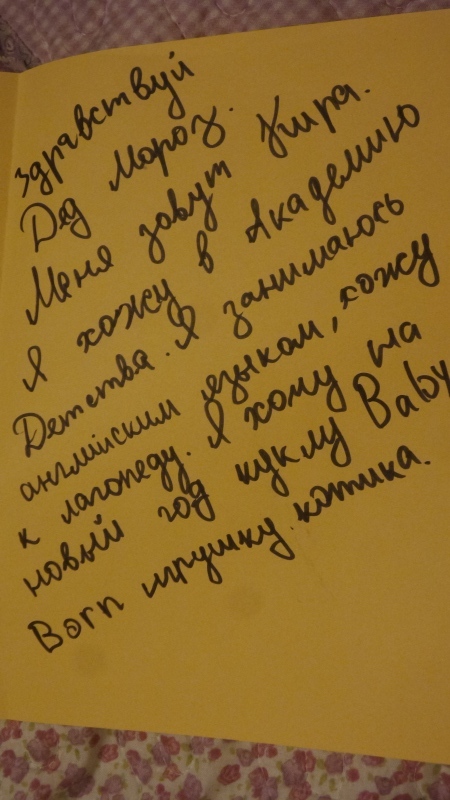 здравствуй
Дед Мороз.
Меня зовут Кира.
Я хожу в Академию
Детства. Я занимаюсь
английским языком, хожу
к лагопеду. Я хочу на
новый год куклу Baby
Born игрушку котика.